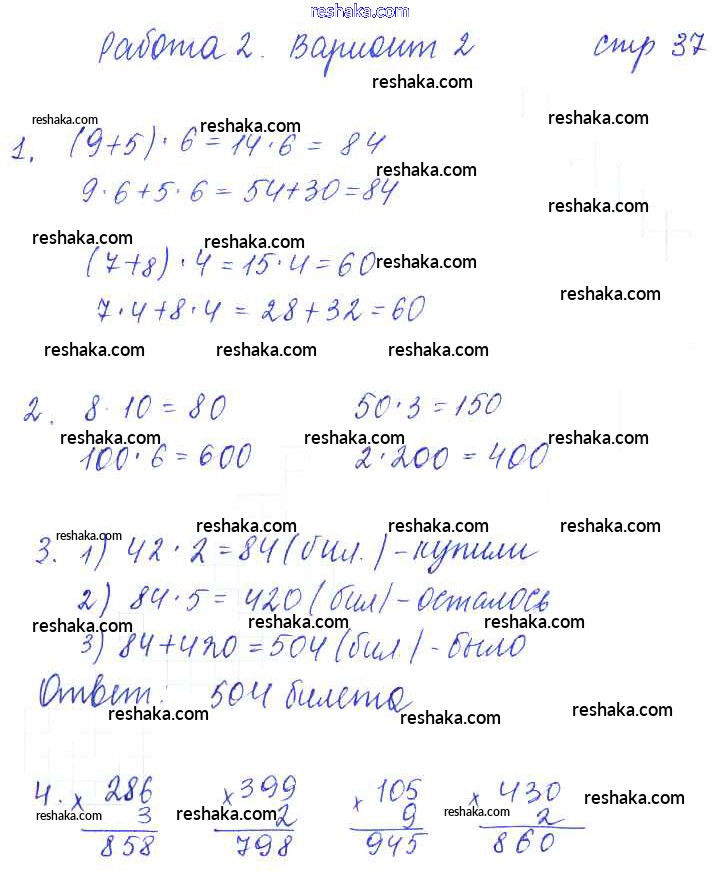 reshaka.com
Работа 2. Вариант 2 стр 37
reshaka.com
reshaka.com reshaka.com reshaka.com
1. (9+5)·6=14·6=84
reshaka.com
9·6+5·6=54+30=84
reshaka.com
reshaka.com reshaka.com
(7+8)·4=15·4=60 reshaka.com
reshaka.com
7·4+8·4=28+32=60
reshaka.com reshaka.com reshaka.com
2. 8·10=80 50·3=150
reshaka.com reshaka.com reshaka.com
100·6=600 2·200=400
reshaka.com reshaka.com reshaka.com
3. 1) 42·2=84(бил.)-купили
2) 84·5=420(бил)-осталось
reshaka.com reshaka.com reshaka.com
3) 84+420=504(бил.)-было
Ответ: 504 билета
reshaka.com reshaka.com reshaka.com
4. ×286 ×399 ×105 ×430
reshaka.com
3 2 9 2
reshaka.com reshaka.com reshaka.com
858 798 945 860